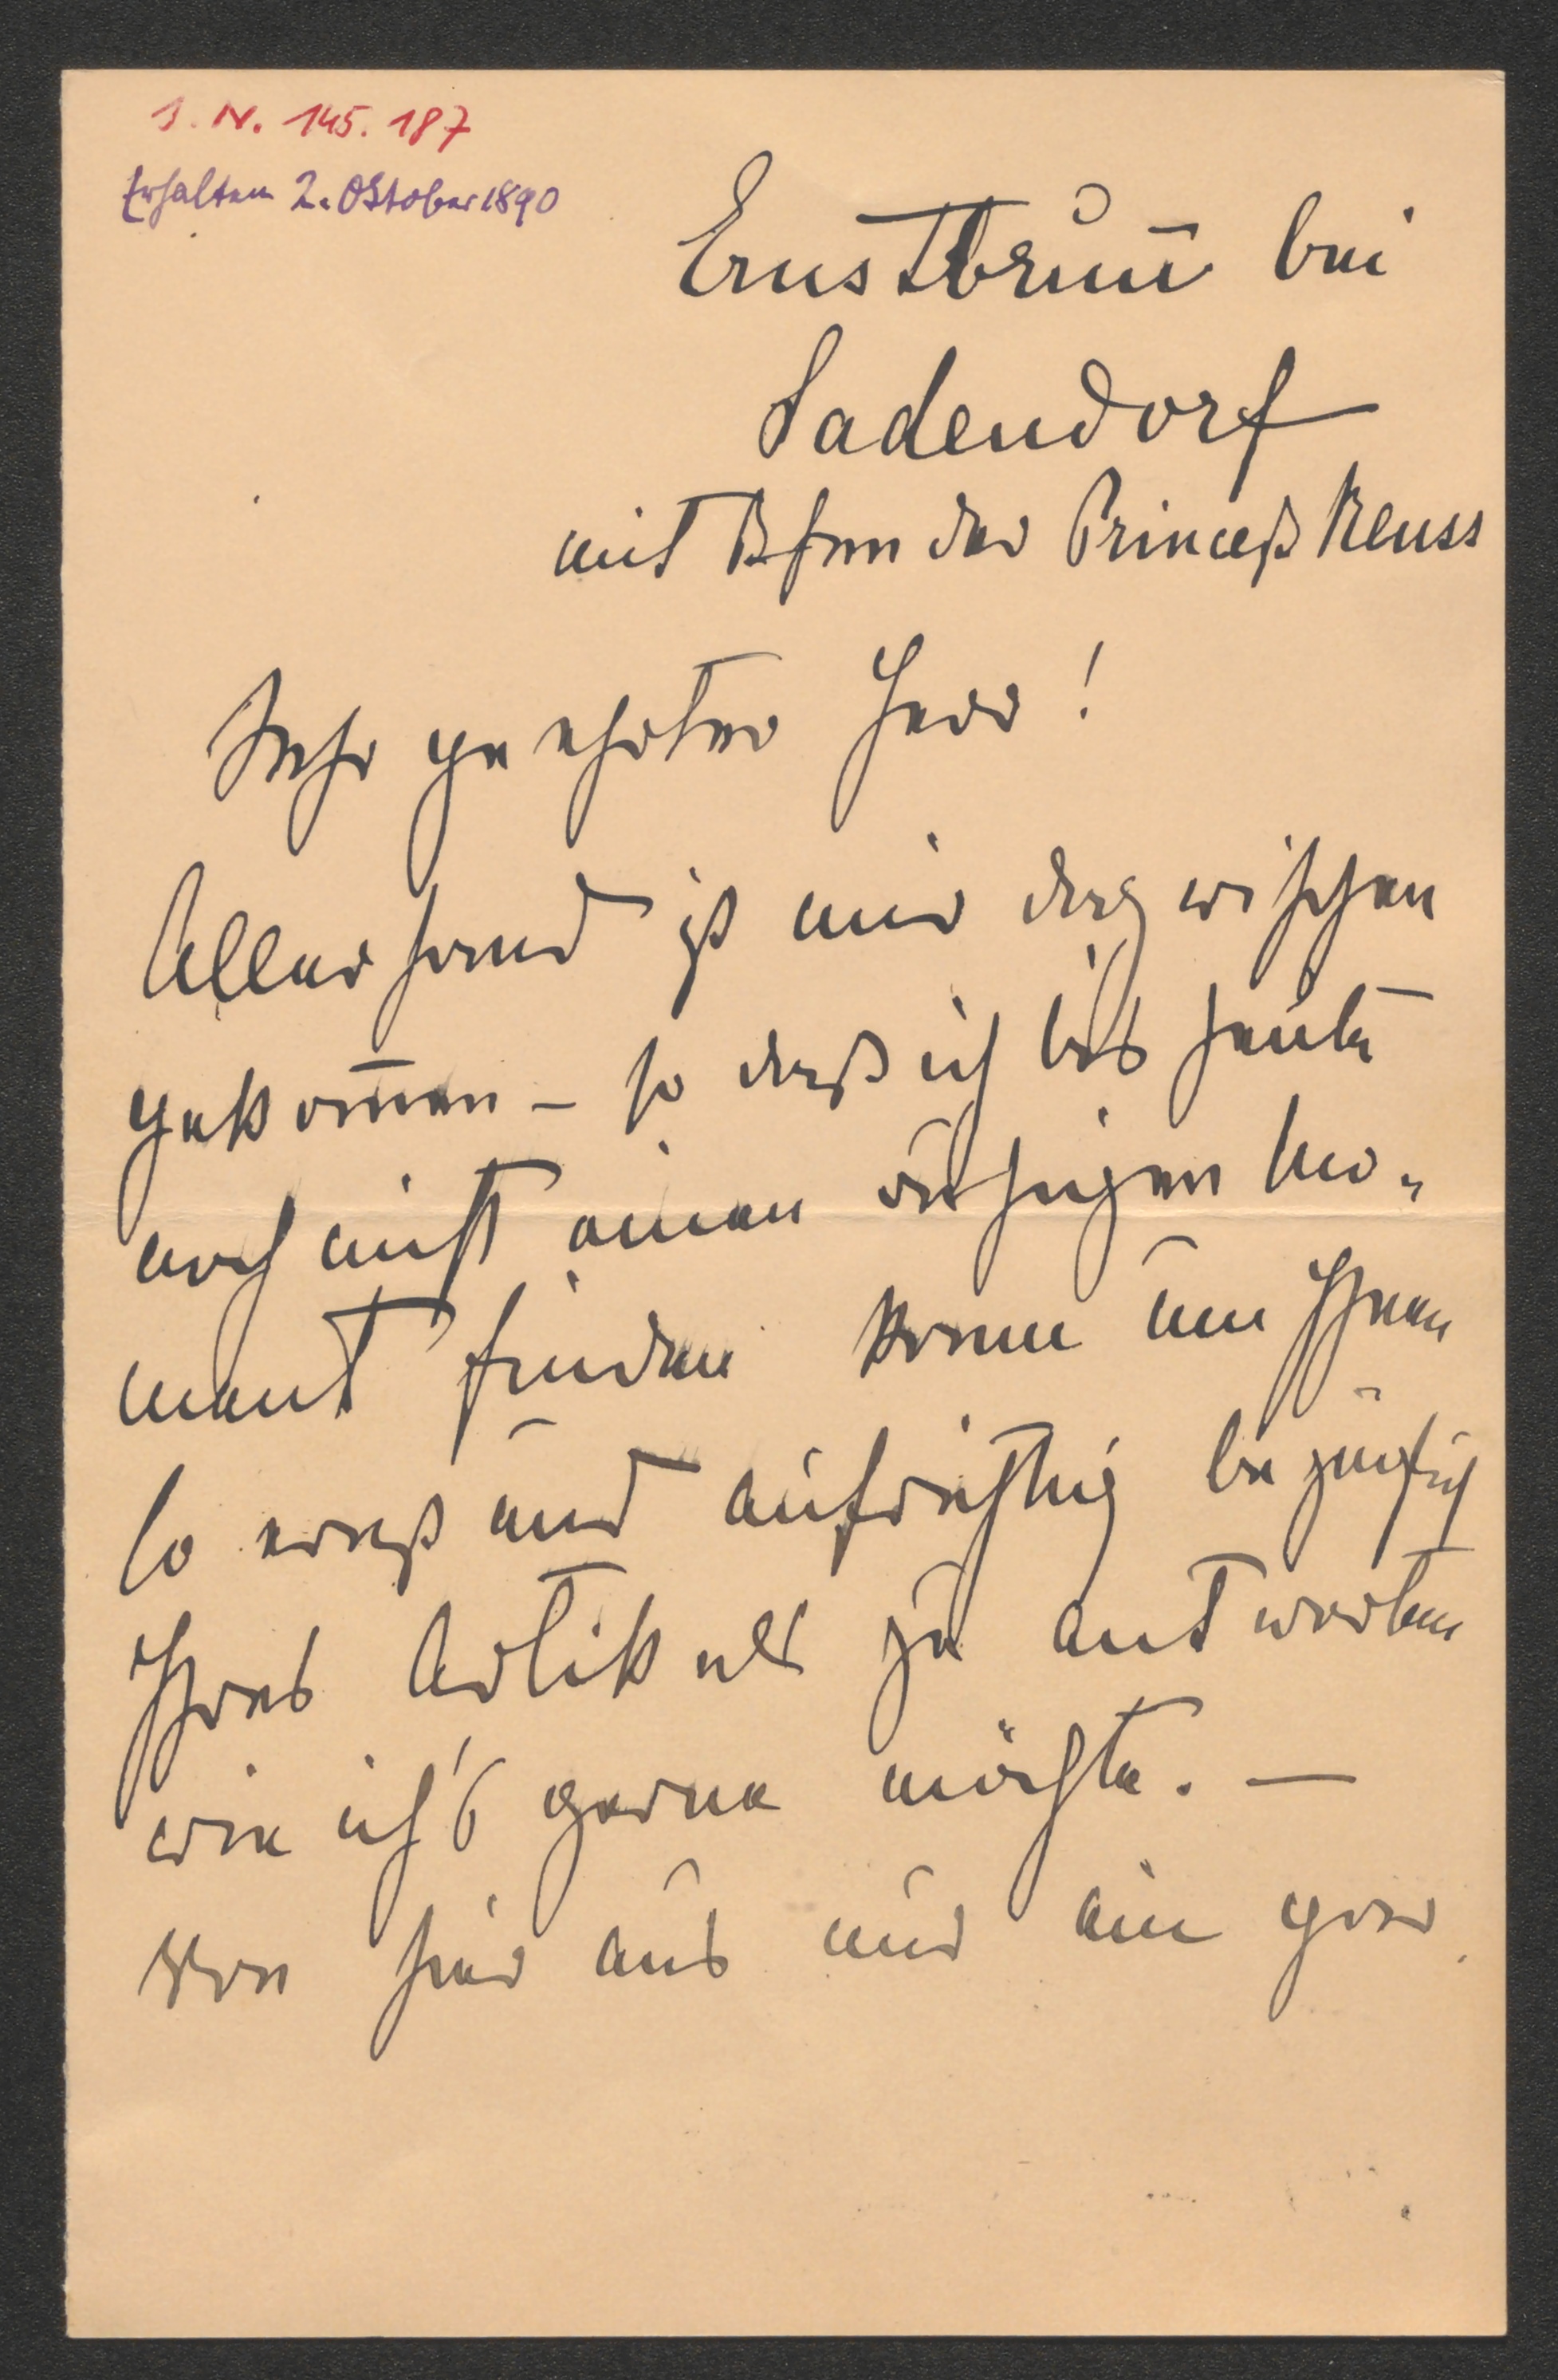 J. N. 145.187
Erhalten 2. Oktober 1890
Ernstbrun̄ bei
Ladendorf
der Princeß Reuss
Sehr geehrter Herr!
Allerhand ist mir dazwischen
gekom̄en – so daß ich bis heute
noch nicht einen ruhigen Mo-
ment finden kann um Ihnen
so ernst und aufrichtig bezüglich
Ihres Artikels zu antworten
wie ich's gerne möchte. –
Von hier aus nur ein paar